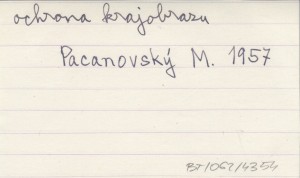 ochrana krajobrazu
Pacanovský M. 1957
BT/062/4354